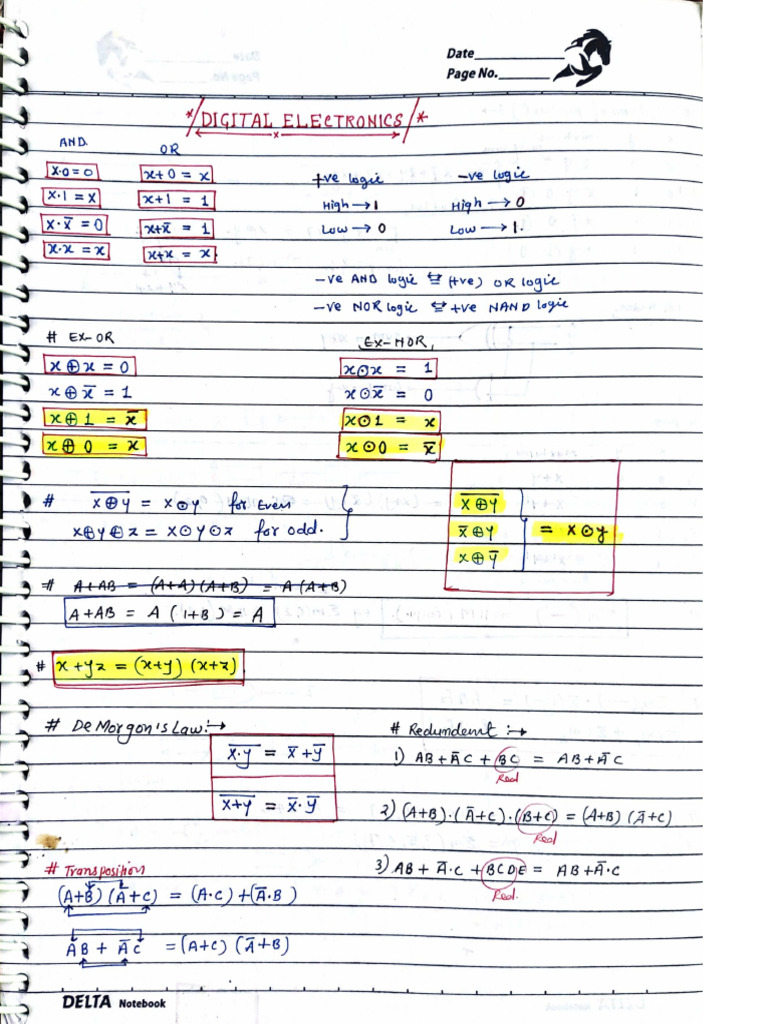 Date
Page No.
*/DIGITAL ELECTRONICS/*
AND. OR
x·0=0 x+0 = x +ve logic -ve logic
x·1 = x x+1 = 1 High → 1 High → 0
x·x̅ = 0 x+x̅ = 1 Low → 0 Low → 1.
x·x = x x+x = x
-ve AND logic ⇆ (+ve) OR logic
-ve NOR logic ⇆ +ve NAND logic
# EX-OR EX-NOR,
x⊕x = 0 x⊙x = 1
x⊕x̅ = 1 x⊙x̅ = 0
x⊕1 = x̅ x⊙1 = x
x⊕0 = x x⊙0 = x̅
# \overline{x⊕y} = x⊙y for Even
x⊕y⊕z = x⊙y⊙z for odd.
\overline{x⊕y}
x̅⊕y = x⊙y
x⊕y̅
# A+AB = (A+A)(A+B) = A(A+B)
A+AB = A(1+B) = A
# x+yz = (x+y)(x+z)
# De Morgon's Law:→
\overline{x·y} = x̅+y̅
\overline{x+y} = x̅·y̅
# Redundent :→
1) AB+A̅C + BC = AB+A̅C
Red
2) (A+B)·(A̅+C)·(B+C) = (A+B)(A̅+C)
Red
3) AB+A̅·C+BCDE = AB+A̅·C
Red.
# Transposition
(A+B)(A̅+C) = (A·C)+(A̅·B)
AB + A̅C = (A+C)(A̅+B)
DELTA Notebook